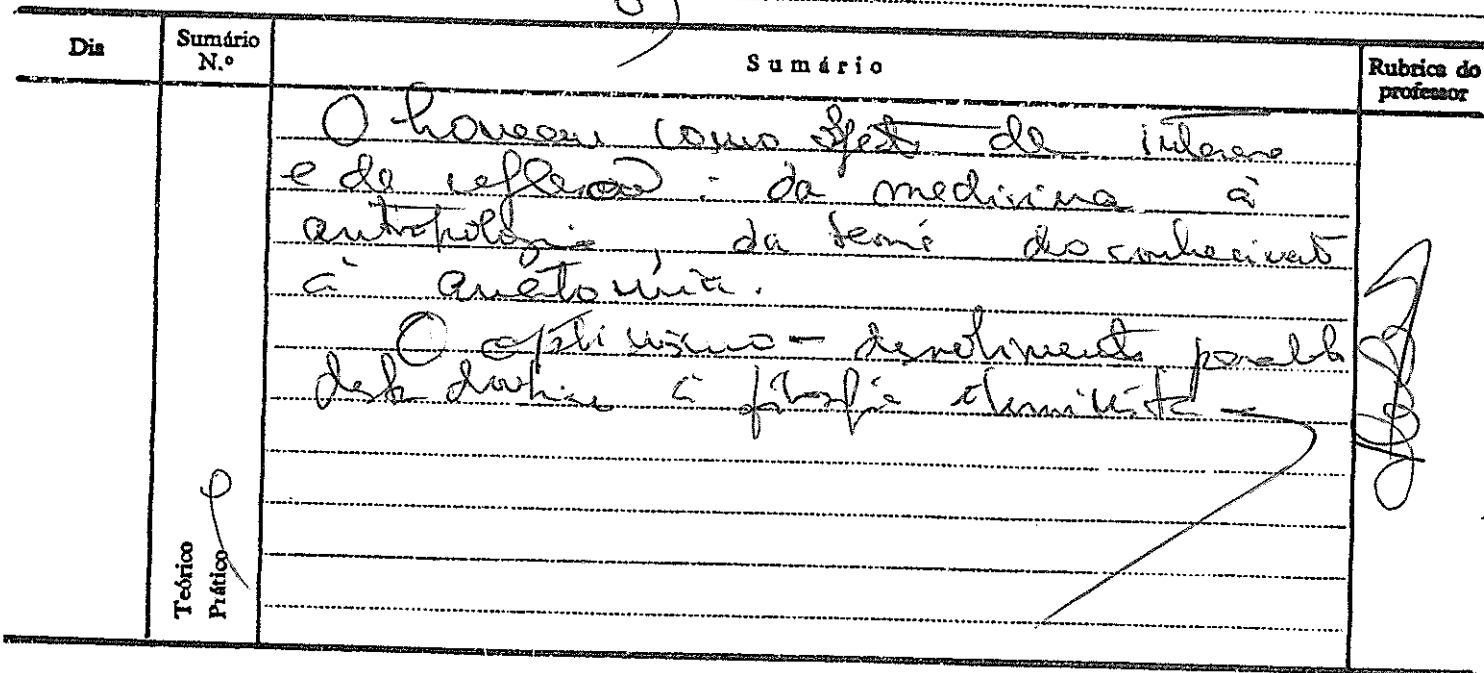 Dia
Sumário N.º
Sumário
Rubrica do professor
O homem como objecto de interesse
e de reflexão : da medicina à
antropologia, da teoria do conhecimento
à anatomia.
O optimismo - desenvolvimento paralelo
desta doutrina à filosofia iluminista -
Teórico
Prático